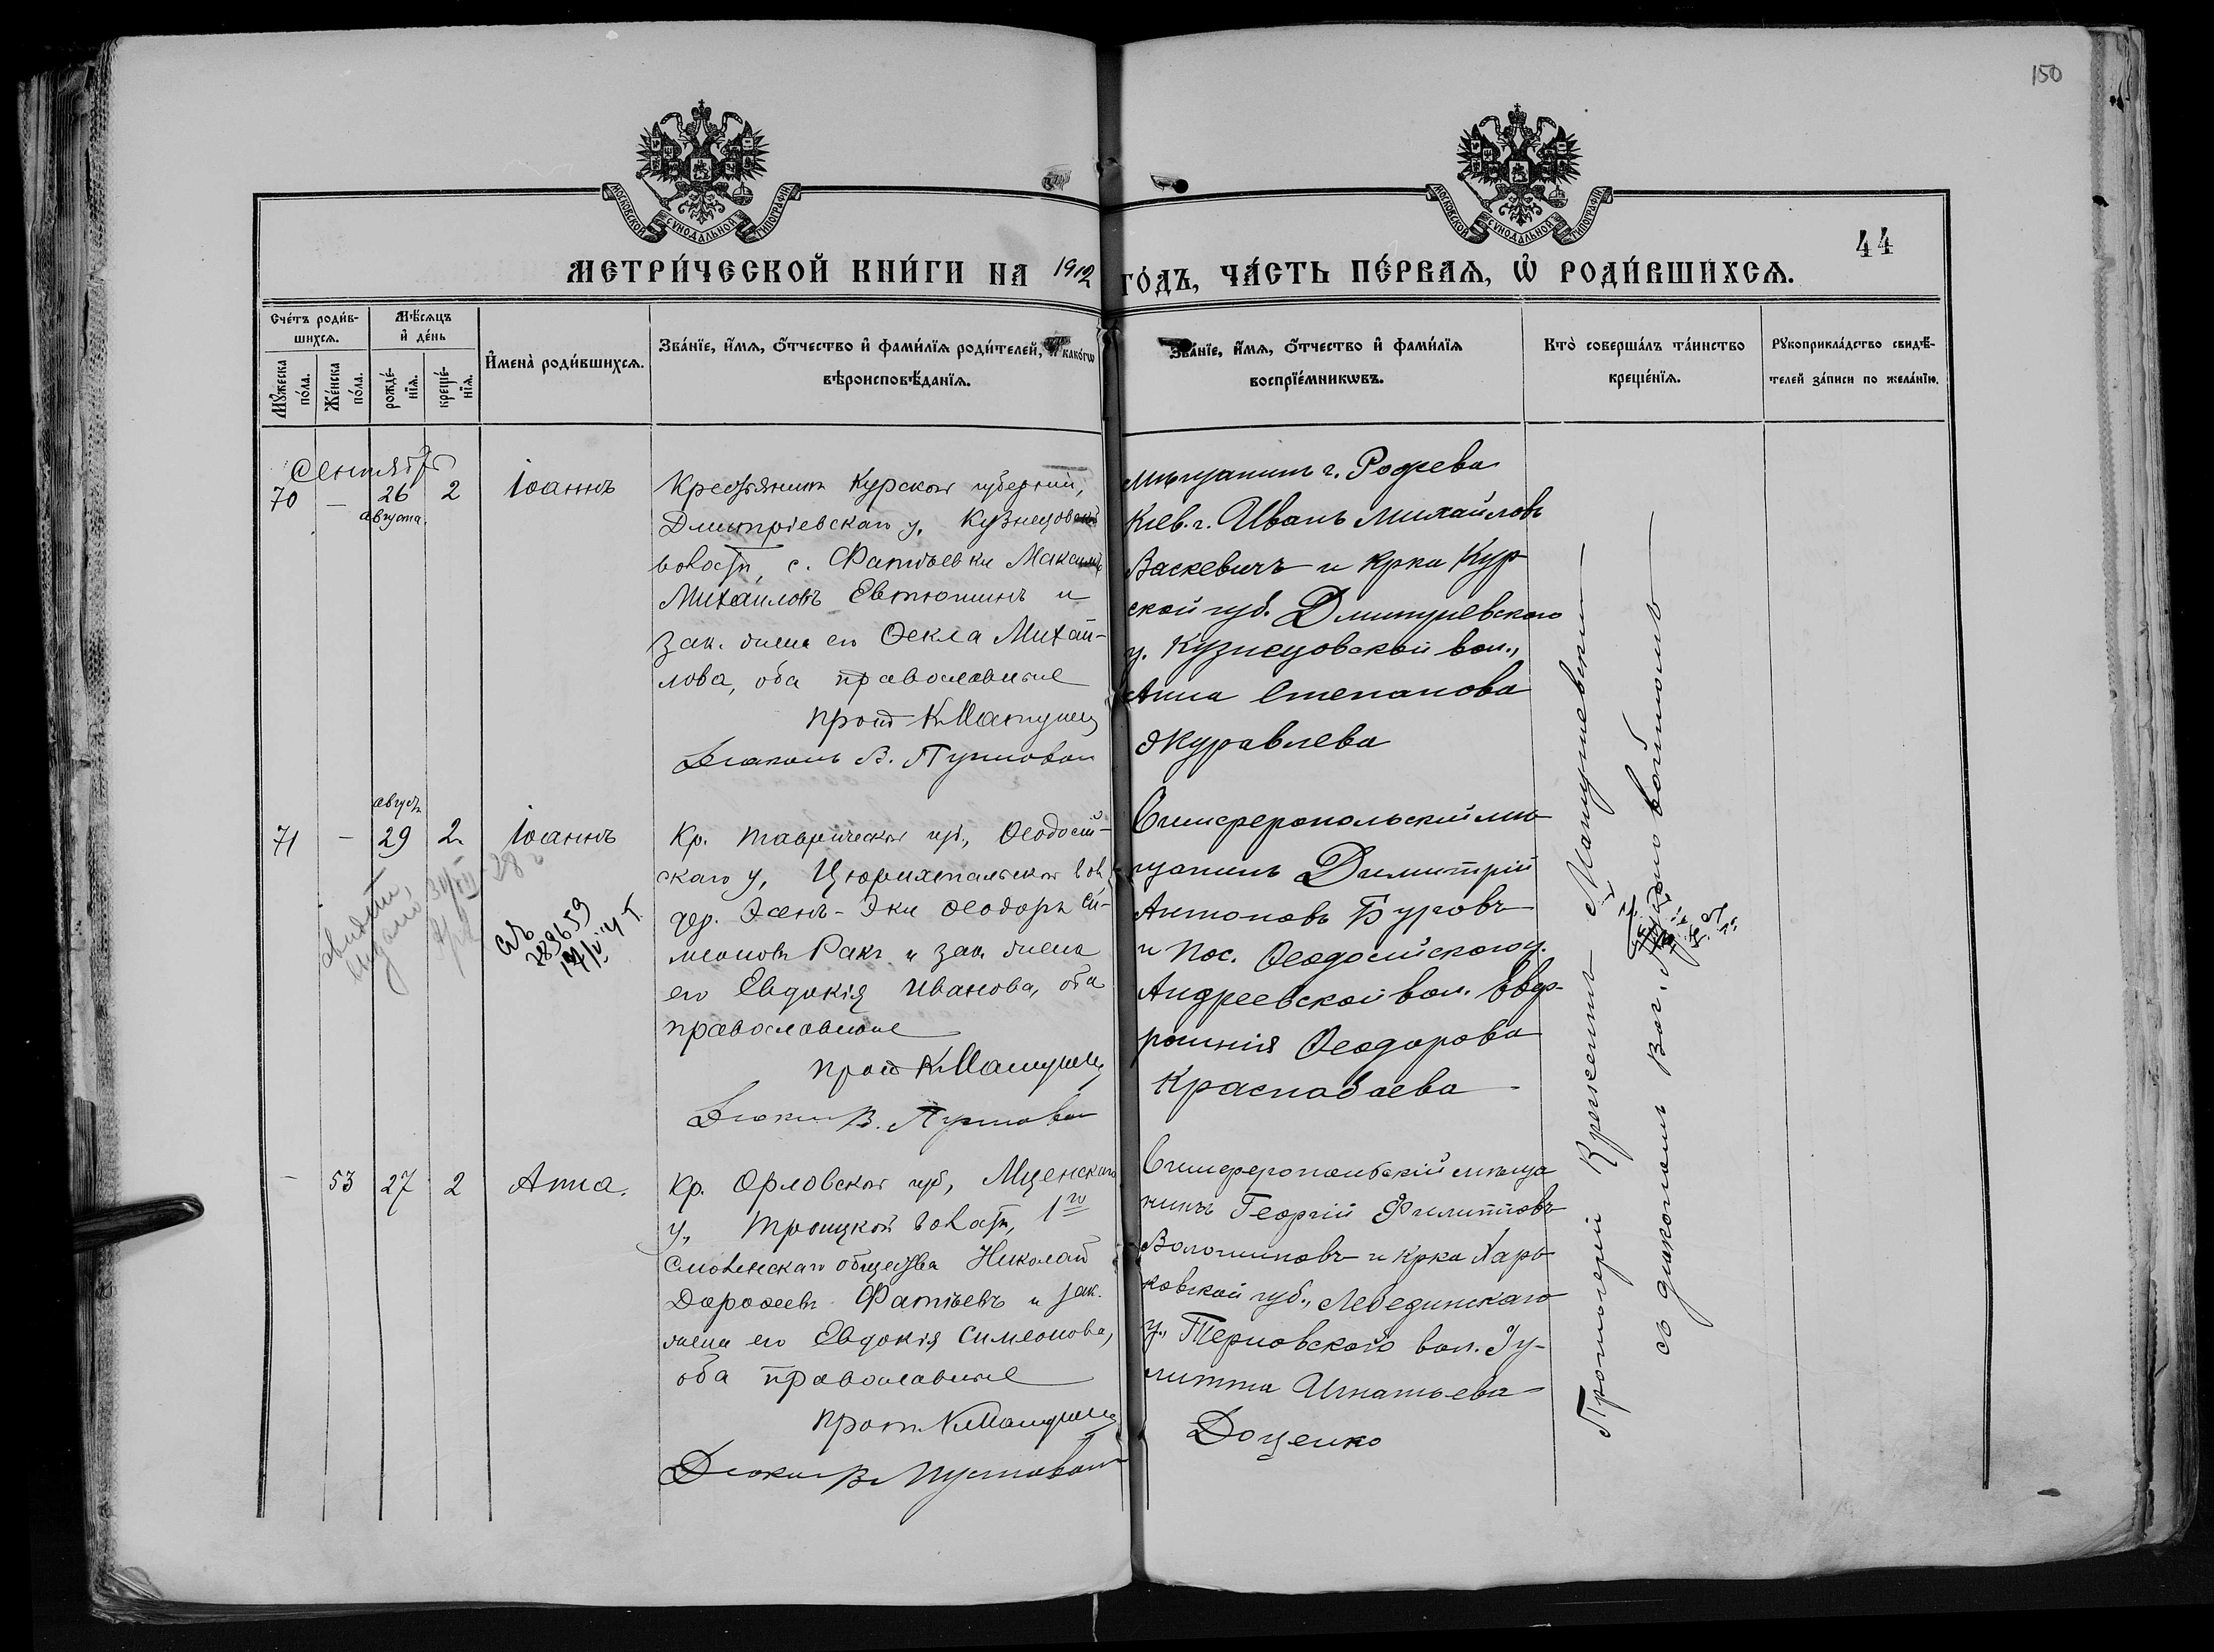 150
МОСКОВСКОЙ СѴНОДАЛЬНОЙ ТИПОГРАФІИ
МОСКОВСКОЙ СѴНОДАЛЬНОЙ ТИПОГРАФІИ
44
МЕТРИ́ЧЕСКОЙ КНИ́ГИ НА 1912 ГО́ДЪ, ЧА́СТЬ ПЕ́РВАѦ, Ѡ҆ РОДИ́ВШИХСѦ.
Сче́тъ роди́в-
шихсѧ.
Мꙋ́жеска по́ла.
Же́нска по́ла.
Мѣ́сѧцъ
и҆ де́нь
рожде́-нїѧ.
креще́-нїѧ.
И҆мена̀ роди́вшихсѧ.
Зва́нїе, и҆́мѧ, ѻ҆́тчество и҆ фами́лїѧ роди́телей, и҆ како́гѡ
вѣроисповѣ́данїѧ.
Зва́нїе, и҆́мѧ, ѻ҆́тчество и҆ фами́лїѧ
воспрїе́мникѡвъ.
Кто̀ соверша́лъ та́инство
креще́нїѧ.
Рꙋкоприкла́дство свидѣ́-
телей за́писи по жела́нїю.
Сентябрь
70 — 26 2 Іоаннъ
августа.
Крестьянинъ Курской губерніи,
Дмитріевскаго у, Кузнецовской
волости, с. Фатѣевки Максимъ
Михаиловъ Евтюшинъ и
зак. жена его Ѳекла Михай-
лова, оба православные
прот К Мацуше
Діаконъ В. Пустовой
мѣщанинъ г. Радзева
Кіев. г. Иванъ Михайловъ
Васкевичъ и крка Кур
ской губ. Дмитріевского
у. Кузнецовской вол.,
Анна Степанова
Журавлева
август
71 — 29 2 Іоаннъ
Кр. Таврической губ., Ѳеодосій-
скаго у, Цюрихтальской вол
дер. Эсенъ-Эки Ѳеодоръ Си-
меоновъ Ракъ и зак жена
его Евдокія Иванова, оба
православные
прот К Мацуше
Діаконъ В. Пустовой
Симферопольскій мѣ
щанинъ Димитрій
Антоновъ Буговъ
и пос. Ѳеодосійского у.
Андреевской вол. Ев
росинія Ѳеодорова
Краснобаева
283659
— 53 27 2 Анна.
Кр. Орловской губ, Мценскаго
у, Троицкой волости, 1го
Смоленскаго общества Николай
Дороѳеевъ Фатѣевъ и зак.
жена его Евдокія Симеонова,
оба православные
прот. К Мацуше
Діаконъ В. Пустовой
Симферопольскій мѣща
нинъ Георгій Филипповъ
Волошиновъ и крка Харь
ковской губ., Лебединскаго
у., Терновской вол. Іу-
литта Игнатьева
Доценко
Протоіерей Крискентъ Мацушевскій
съ діакономъ Вас. Пустовойтомъ